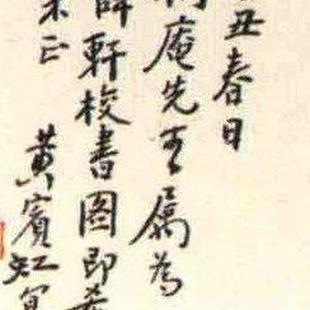 丑春日
庵先生属為
軒校書圖即希
正
黃賓虹寫